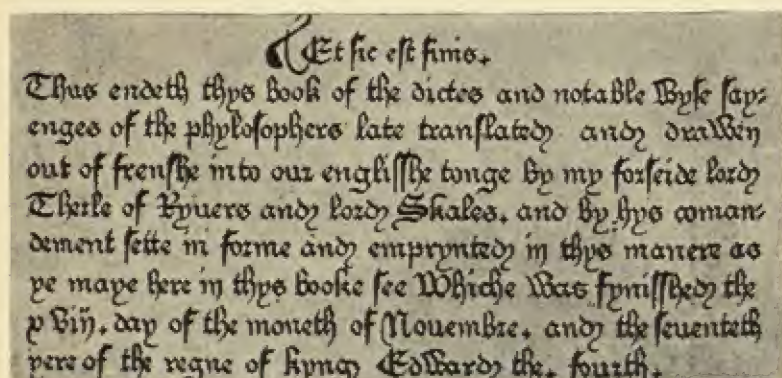 Et sic est finis.
Thus endeth thys book of the dictes and notable wyse say⸗
enges of the phylosophers late translated and drawen
out of frenshe into our englisshe tonge by my forseide lord
Therle of Ryuers and lord Skales. and by hys coman⸗
dement sette in forme and emprynted in thys manere as
ye maye here in thys booke see Whiche was fynisshed the
xviij. day of the moneth of Nouembre. and the seuenteth
yere of the regne of kyng Edward the. fourth.